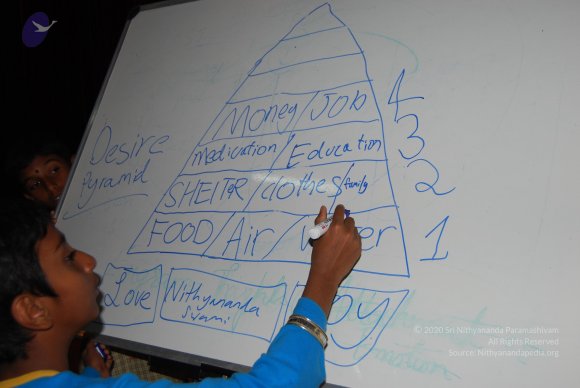 Desire
Pyramid
Money/Job 4
medication/Education 3
SHElTeR/clothes/family 2
FOOD/Air/Water 1
Love Nithyananda Joy
Swami
© 2020 Sri Nithyananda Paramashivam
All Rights Reserved
Source: Nithyanandapedia.org